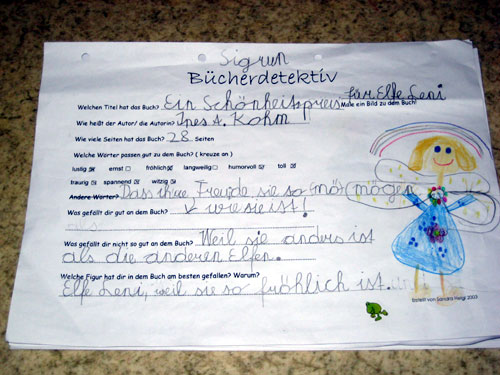 Sigrun
Bücherdetektiv
Welchen Titel hat das Buch? Ein Schönheitspreis für Elfe Leni
Male ein Bild zu dem Buch!
Wie heißt der Autor/ die Autorin? Ines A. Kohm
Wie viele Seiten hat das Buch? 28 Seiten
Welche Wörter passen gut zu dem Buch? ( kreuze an )
lustig ernst fröhlich langweilig humorvoll toll
traurig spannend witzig
Andere Wörter? Dass ihre Freunde sie so mögen
Was gefällt dir gut an dem Buch? wie sie ist!
Was gefällt dir nicht so gut an dem Buch? Weil sie anders ist
als die anderen Elfen.
Welche Figur hat dir in dem Buch am besten gefallen? Warum?
Elfe Leni, weil sie so fröhlich ist.
Erstellt von Sandra Heigl 2003